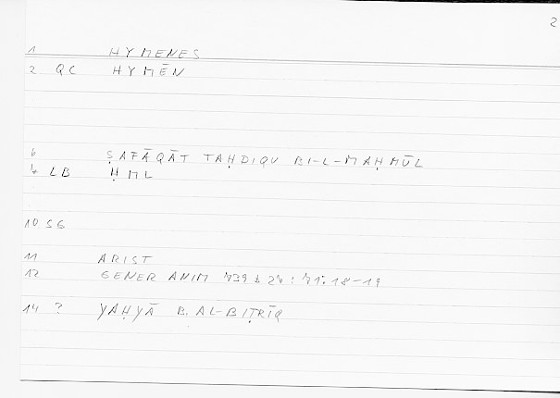 2
1 HYMENES
2 QC HYMĒN
6 ṢAFĀQĀT TAḤDIQU BI-L-MAḤMŪL
4 LB ḤML
10 SG
11 ARIST
12 GENER ANIM 739 b 27 : 71, 18-19
14 ? YAḤYĀ B. AL-BIṬRĪQ